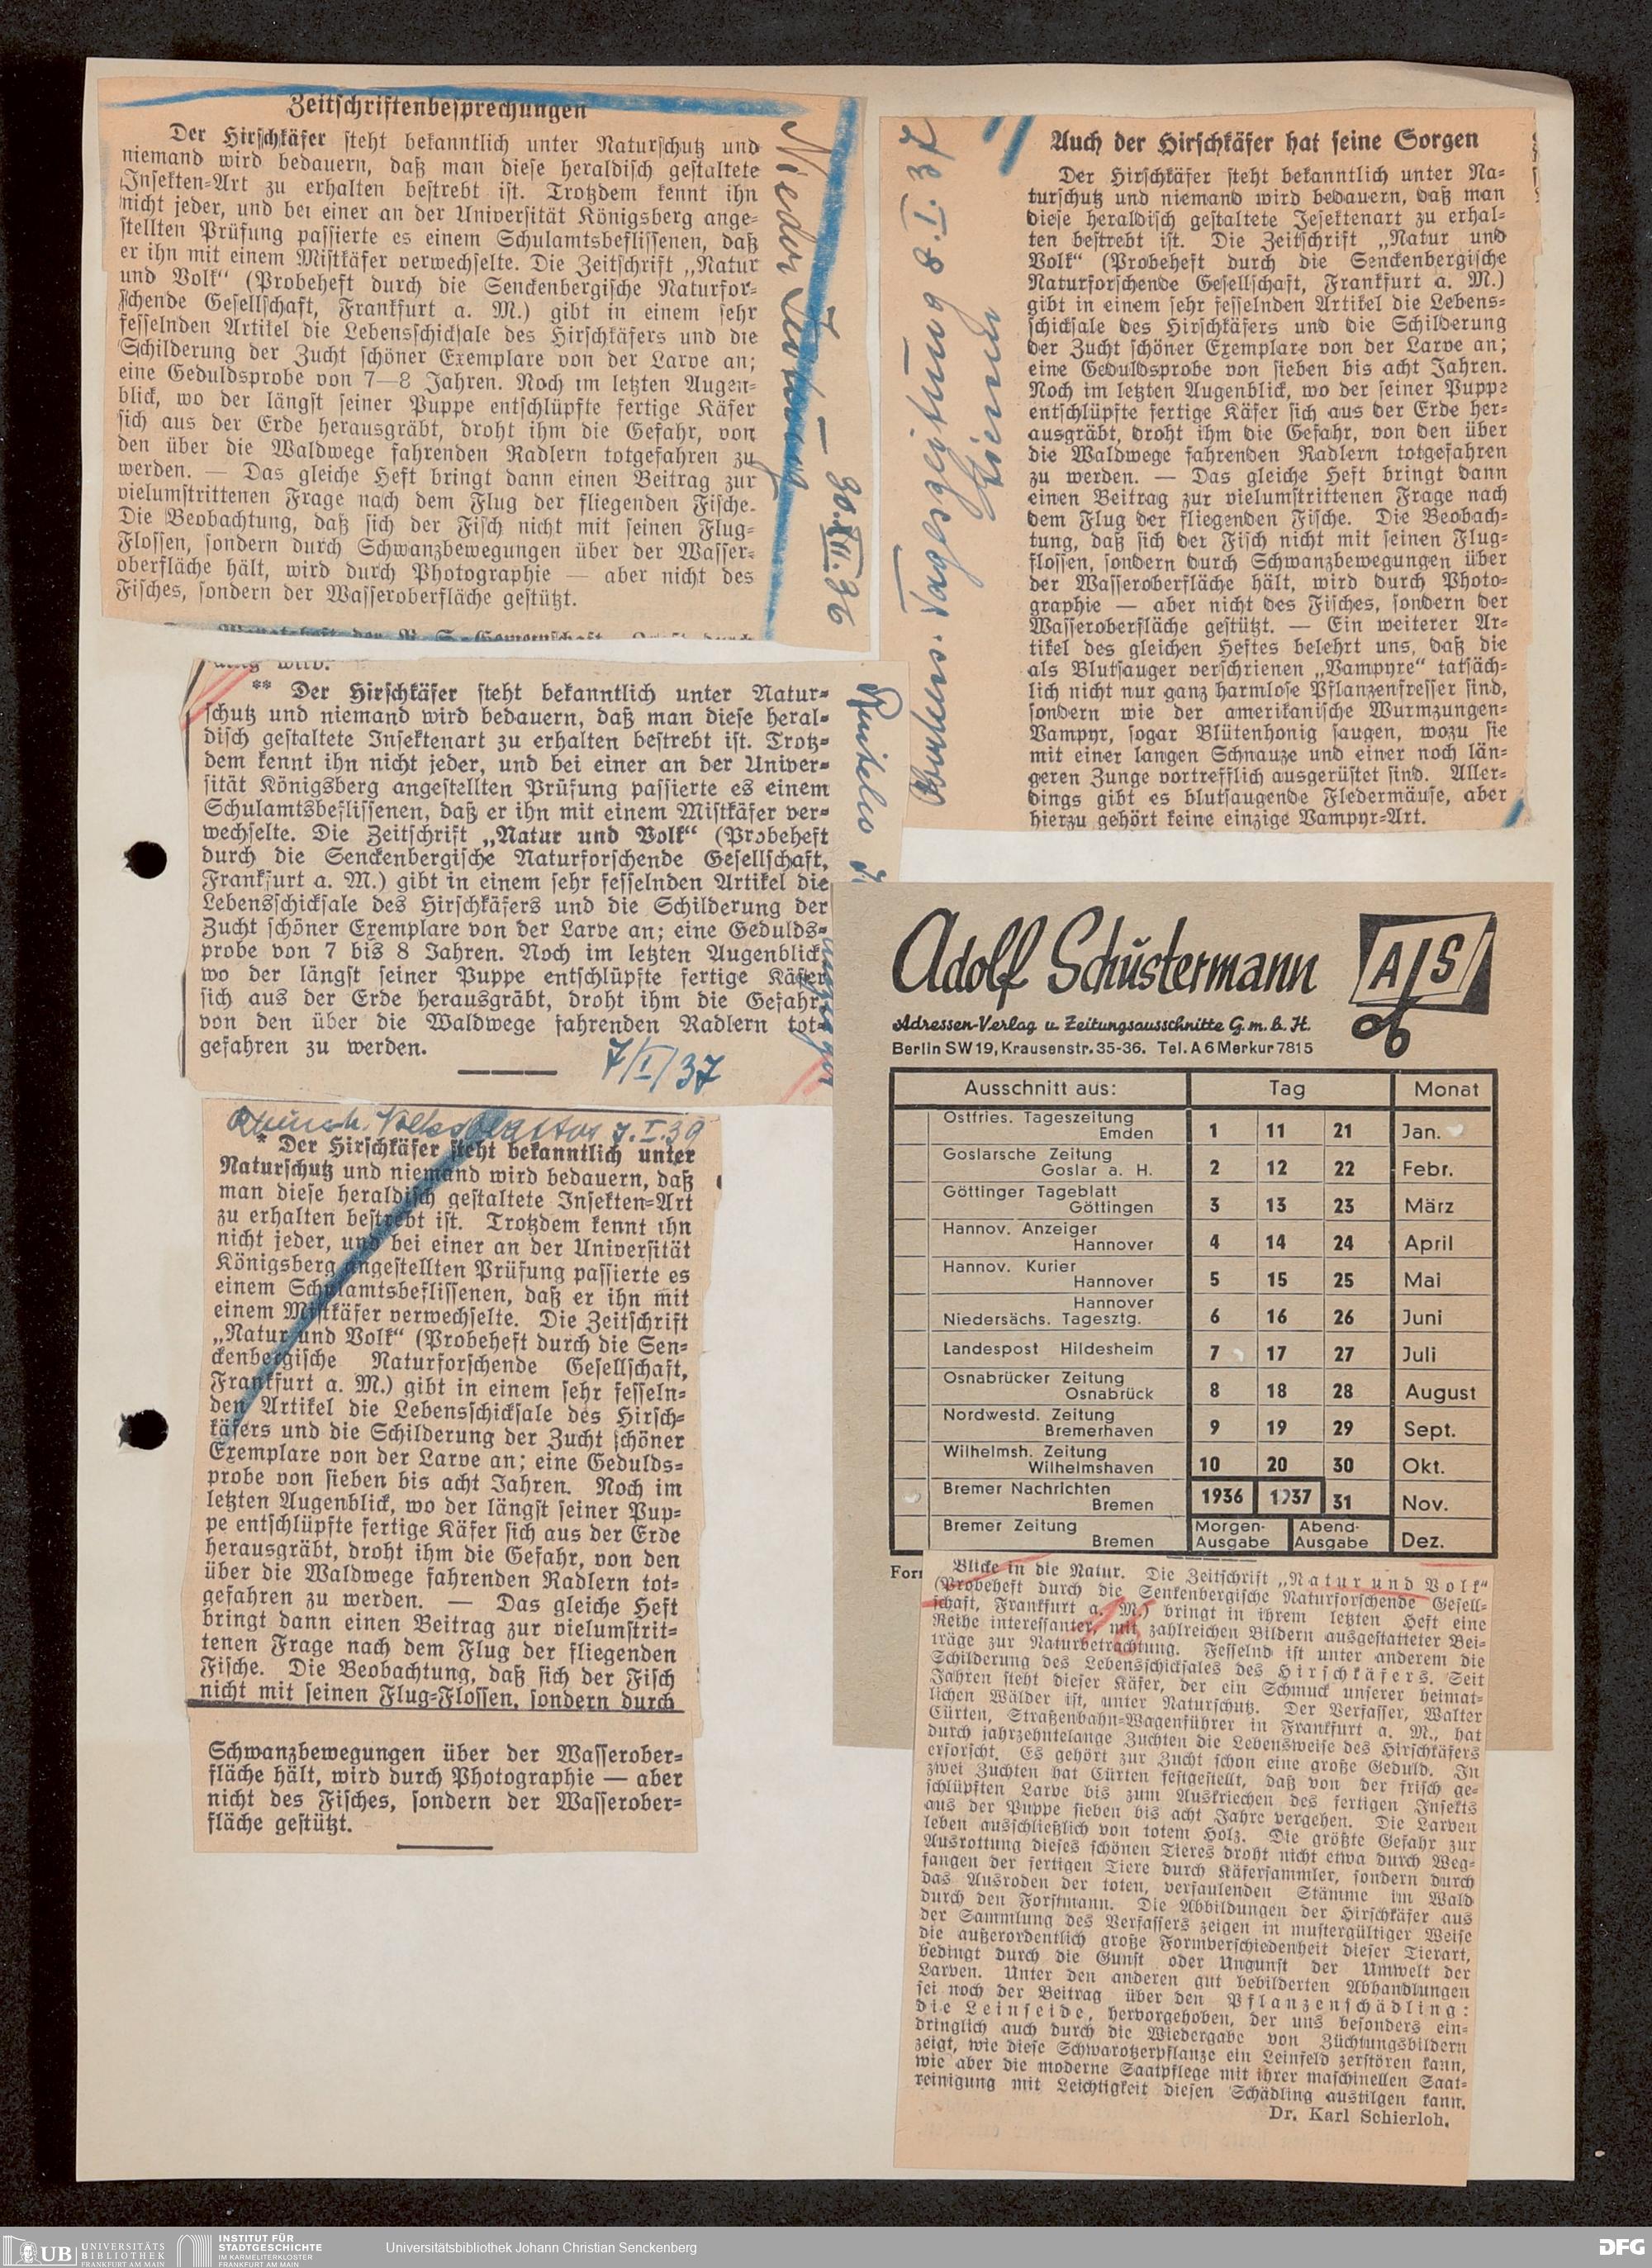 Zeitschriftenbesprechungen
Der Hirschkäfer steht bekanntlich unter Naturschutz und
niemand wird bedauern, daß man diese heraldisch gestaltete
Insekten-Art zu erhalten bestrebt ist. Trotzdem kennt ihn
nicht jeder, und bei einer an der Universität Königsberg ange-
stellten Prüfung passierte es einem Schulamtsbeflissenen, daß
er ihn mit einem Mistkäfer verwechselte. Die Zeitschrift „Natur
und Volk“ (Probeheft durch die Senckenbergische Naturfor-
schende Gesellschaft, Frankfurt a. M.) gibt in einem sehr
fesselnden Artikel die Lebensschicksale des Hirschkäfers und die
Schilderung der Zucht schöner Exemplare von der Larve an;
eine Geduldsprobe von 7—8 Jahren. Noch im letzten Augen-
blick, wo der längst seiner Puppe entschlüpfte fertige Käfer
sich aus der Erde herausgräbt, droht ihm die Gefahr, von
den über die Waldwege fahrenden Radlern totgefahren zu
werden. — Das gleiche Heft bringt dann einen Beitrag zur
vielumstrittenen Frage nach dem Flug der fliegenden Fische.
Die Beobachtung, daß sich der Fisch nicht mit seinen Flug-
Flossen, sondern durch Schwanzbewegungen über der Wasser-
oberfläche hält, wird durch Photographie — aber nicht des
Fisches, sondern der Wasseroberfläche gestützt.
30.XII.36
** Der Hirschkäfer steht bekanntlich unter Natur-
schutz und niemand wird bedauern, daß man diese heral-
disch gestaltete Insektenart zu erhalten bestrebt ist. Trotz-
dem kennt ihn nicht jeder, und bei einer an der Univer-
sität Königsberg angestellten Prüfung passierte es einem
Schulamtsbeflissenen, daß er ihn mit einem Mistkäfer ver-
wechselte. Die Zeitschrift „Natur und Volk“ (Probeheft
durch die Senckenbergische Naturforschende Gesellschaft,
Frankfurt a. M.) gibt in einem sehr fesselnden Artikel die
Lebensschicksale des Hirschkäfers und die Schilderung der
Zucht schöner Exemplare von der Larve an; eine Gedulds-
probe von 7 bis 8 Jahren. Noch im letzten Augenblick
wo der längst seiner Puppe entschlüpfte fertige Käfer
sich aus der Erde herausgräbt, droht ihm die Gefahr,
von den über die Waldwege fahrenden Radlern tot-
gefahren zu werden.
7/I/37
7.I.39
* Der Hirschkäfer steht bekanntlich unter
Naturschutz und niemand wird bedauern, daß
man diese heraldisch gestaltete Insekten-Art
zu erhalten bestrebt ist. Trotzdem kennt ihn
nicht jeder, und bei einer an der Universität
Königsberg angestellten Prüfung passierte es
einem Schulamtsbeflissenen, daß er ihn mit
einem Mistkäfer verwechselte. Die Zeitschrift
„Natur und Volk“ (Probeheft durch die Sen-
ckenbergische Naturforschende Gesellschaft,
Frankfurt a. M.) gibt in einem sehr fesseln-
den Artikel die Lebensschicksale des Hirsch-
käfers und die Schilderung der Zucht schöner
Exemplare von der Larve an; eine Gedulds-
probe von sieben bis acht Jahren. Noch im
letzten Augenblick, wo der längst seiner Pup-
pe entschlüpfte fertige Käfer sich aus der Erde
herausgräbt, droht ihm die Gefahr, von den
über die Waldwege fahrenden Radlern tot-
gefahren zu werden. — Das gleiche Heft
bringt dann einen Beitrag zur vielumstrit-
tenen Frage nach dem Flug der fliegenden
Fische. Die Beobachtung, daß sich der Fisch
nicht mit seinen Flug-Flossen, sondern durch
Schwanzbewegungen über der Wasserober-
fläche hält, wird durch Photographie — aber
nicht des Fisches, sondern der Wasserober-
fläche gestützt.
Tageszeitung 8.I.37
Auch der Hirschkäfer hat seine Sorgen
Der Hirschkäfer steht bekanntlich unter Na-
turschutz und niemand wird bedauern, daß man
diese heraldisch gestaltete Jesektenart zu erhal-
ten bestrebt ist. Die Zeitschrift „Natur und
Volk“ (Probeheft durch die Senckenbergische
Naturforschende Gesellschaft, Frankfurt a. M.)
gibt in einem sehr fesselnden Artikel die Lebens-
schicksale des Hirschkäfers und die Schilderung
der Zucht schöner Exemplare von der Larve an;
eine Geduldsprobe von sieben bis acht Jahren.
Noch im letzten Augenblick, wo der seiner Puppe
entschlüpfte fertige Käfer sich aus der Erde her-
ausgräbt, droht ihm die Gefahr, von den über
die Waldwege fahrenden Radlern totgefahren
zu werden. — Das gleiche Heft bringt dann
einen Beitrag zur vielumstrittenen Frage nach
dem Flug der fliegenden Fische. Die Beobach-
tung, daß sich der Fisch nicht mit seinen Flug-
flossen, sondern durch Schwanzbewegungen über
der Wasseroberfläche hält, wird durch Photo-
graphie — aber nicht des Fisches, sondern der
Wasseroberfläche gestützt. — Ein weiterer Ar-
tikel des gleichen Heftes belehrt uns, daß die
als Blutsauger verschrienen „Vampyre“ tatsäch-
lich nicht nur ganz harmlose Pflanzenfresser sind,
sondern wie der amerikanische Wurmzungen-
Vampyr, sogar Blütenhonig saugen, wozu sie
mit einer langen Schnauze und einer noch län-
geren Zunge vortrefflich ausgerüstet sind. Aller-
dings gibt es blutsaugende Fledermäuse, aber
hierzu gehört keine einzige Vampyr-Art.
Adolf Schustermann
A/S
Adressen-Verlag u. Zeitungsausschnitte G.m.b.H.
Berlin SW19, Krausenstr. 35-36. Tel. A6 Merkur 7815
Ausschnitt aus: Tag Monat
Ostfries. Tageszeitung
Emden 1 11 21 Jan.
Goslarsche Zeitung
Goslar a. H. 2 12 22 Febr.
Göttinger Tageblatt
Göttingen 3 13 23 März
Hannov. Anzeiger
Hannover 4 14 24 April
Hannov. Kurier
Hannover 5 15 25 Mai
Hannover
Niedersächs. Tagesztg. 6 16 26 Juni
Landespost Hildesheim 7 17 27 Juli
Osnabrücker Zeitung
Osnabrück 8 18 28 August
Nordwestd. Zeitung
Bremerhaven 9 19 29 Sept.
Wilhelmsh. Zeitung
Wilhelmshaven 10 20 30 Okt.
Bremer Nachrichten
Bremen 1936 1937 31 Nov.
Bremer Zeitung
Bremen Morgen-Ausgabe Abend-Ausgabe Dez.
Blicke in die Natur. Die Zeitschrift „Natur und Volk“
(Probeheft durch die Senkenbergische Naturforschende Gesell-
schaft, Frankfurt a. M.) bringt in ihrem letzten Heft eine
Reihe interessanter, mit zahlreichen Bildern ausgestatteter Bei-
träge zur Naturbetrachtung. Fesselnd ist unter anderem die
Schilderung des Lebensschicksales des Hirschkäfers. Seit
Jahren steht dieser Käfer, der ein Schmuck unserer heimat-
lichen Wälder ist, unter Naturschutz. Der Verfasser, Walter
Cürten, Straßenbahn-Wagenführer in Frankfurt a. M., hat
durch jahrzehntelange Zuchten die Lebensweise des Hirschkäfers
erforscht. Es gehört zur Zucht schon eine große Geduld. In
zwei Zuchten hat Cürten festgestellt, daß von der frisch ge-
schlüpften Larve bis zum Auskriechen des fertigen Insekts
aus der Puppe sieben bis acht Jahre vergehen. Die Larven
leben ausschließlich von totem Holz. Die größte Gefahr zur
Ausrottung dieses schönen Tieres droht nicht etwa durch Weg-
fangen der fertigen Tiere durch Käfersammler, sondern durch
das Ausroden der toten, verfaulenden Stämme im Wald
durch den Forstmann. Die Abbildungen der Hirschkäfer aus
der Sammlung des Verfassers zeigen in mustergültiger Weise
die außerordentlich große Formverschiedenheit dieser Tierart,
bedingt durch die Gunst oder Ungunst der Umwelt der
Larven. Unter den anderen gut bebilderten Abhandlungen
sei noch der Beitrag über den Pflanzenschädling:
die Leinseide, hervorgehoben, der uns besonders ein-
dringlich auch durch die Wiedergabe von Züchtungsbildern
zeigt, wie diese Schwarotzerpflanze ein Leinfeld zerstören kann,
wie aber die moderne Saatpflege mit ihrer maschinellen Saat-
reinigung mit Leichtigkeit diesen Schädling austilgen kann.
Dr. Karl Schierloh.
UB UNIVERSITÄTS
BIBLIOTHEK
FRANKFURT AM MAIN
INSTITUT FÜR
STADTGESCHICHTE
IM KARMELITERKLOSTER
FRANKFURT AM MAIN
Universitätsbibliothek Johann Christian Senckenberg
DFG